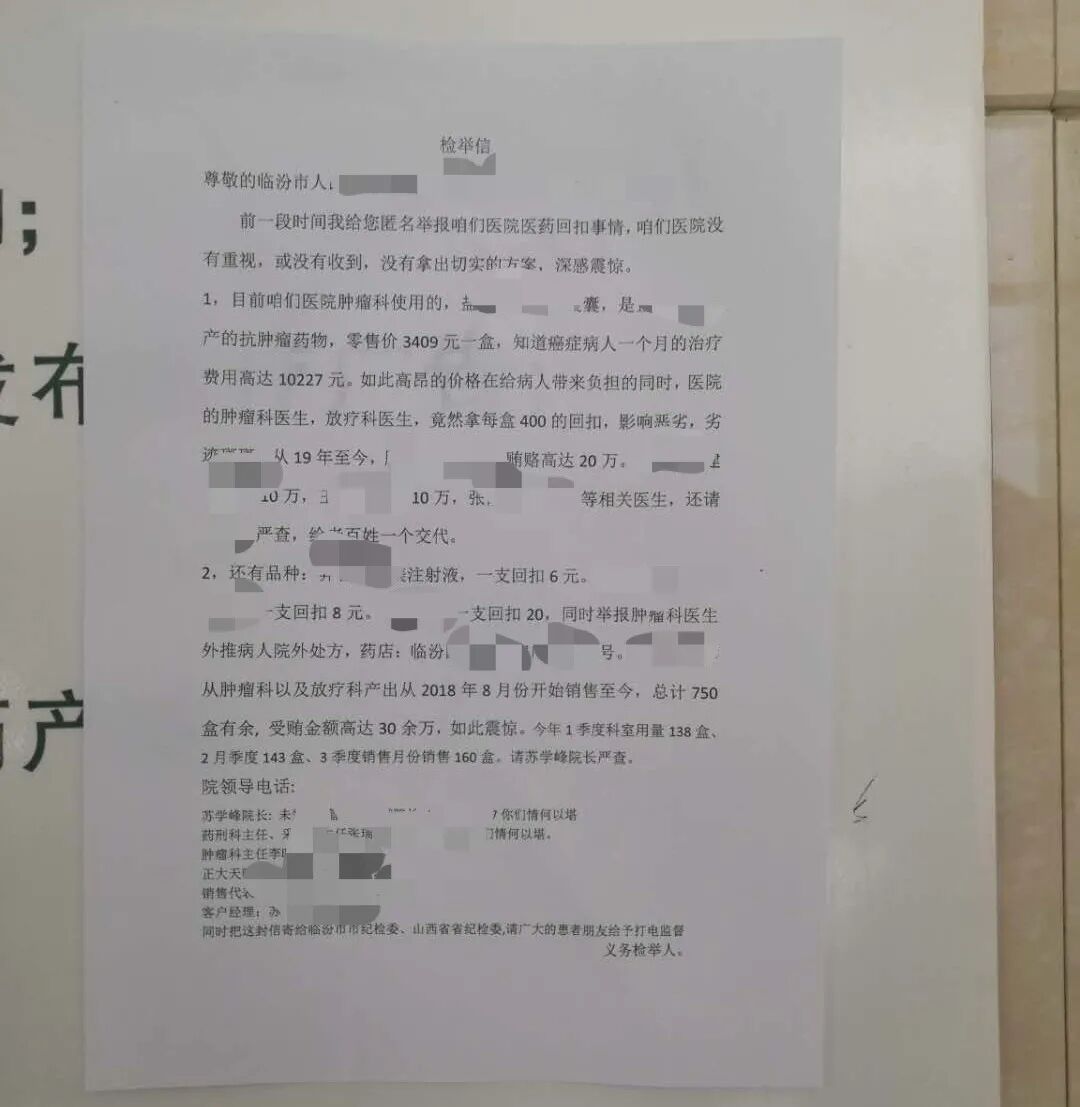 检举信
尊敬的临汾市人
前一段时间我给您匿名举报咱们医院医药回扣事情，咱们医院没
有重视，或没有收到，没有拿出切实的方案，深感震惊。
1，目前咱们医院肿瘤科使用的，盐 囊，是
产的抗肿瘤药物，零售价 3409 元一盒，知道癌症病人一个月的治疗
费用高达 10227 元。如此高昂的价格在给病人带来负担的同时，医院
的肿瘤科医生，放疗科医生，竟然拿每盒 400 的回扣，影响恶劣，劣
迹斑斑 从 19 年至今， 贿赂高达 20 万。
10 万，王 10 万，张 等相关医生，还请
严查，给老百姓一个交代。
2，还有品种： 注射液，一支回扣 6 元。
一支回扣 8 元。 一支回扣 20，同时举报肿瘤科医生
外推病人院外处方，药店：临汾 号。
从肿瘤科以及放疗科产出从 2018 年 8 月份开始销售至今，总计 750
盒有余, 受贿金额高达 30 余万，如此震惊。今年 1 季度科室用量 138 盒、
2 月季度 143 盒、3 季度销售月份销售 160 盒。请苏学峰院长严查。
院领导电话:
苏学峰院长: 你们情何以堪
药刑科主任、 主任张瑞 们情何以堪。
肿瘤科主任李
正大天
销售代
客户经理：孙
同时把这封信寄给临汾市市纪检委、山西省省纪检委,请广大的患者朋友给予打电监督
义务检举人。
发布
产